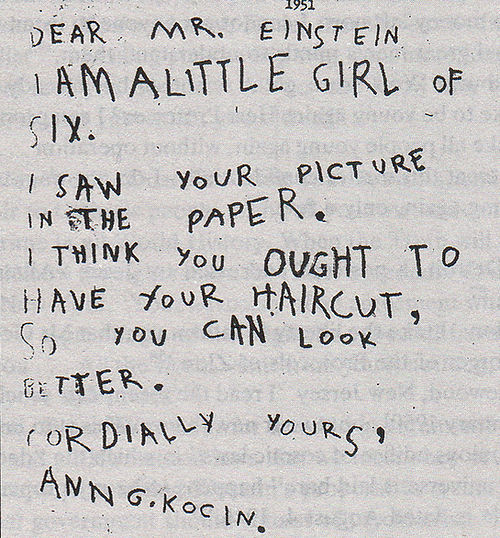 1951
DEAR MR. EINSTEIN
I AM A LITTLE GIRL OF
SIX.
I SAW YOUR PICTURE
IN THE PAPER.
I THINK YOU OUGHT TO
HAVE YOUR HAIRCUT,
SO YOU CAN LOOK
BETTER.
CORDIALLY YOURS,
ANN G. KOCIN.